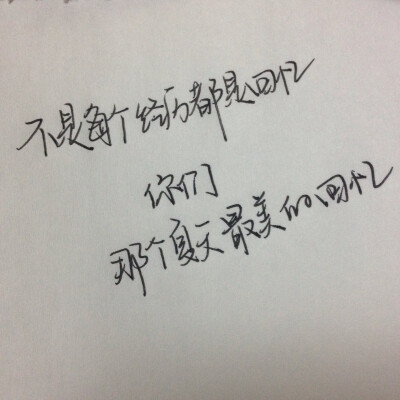 不是每个经历都是回忆
你们
那个夏天最美的回忆